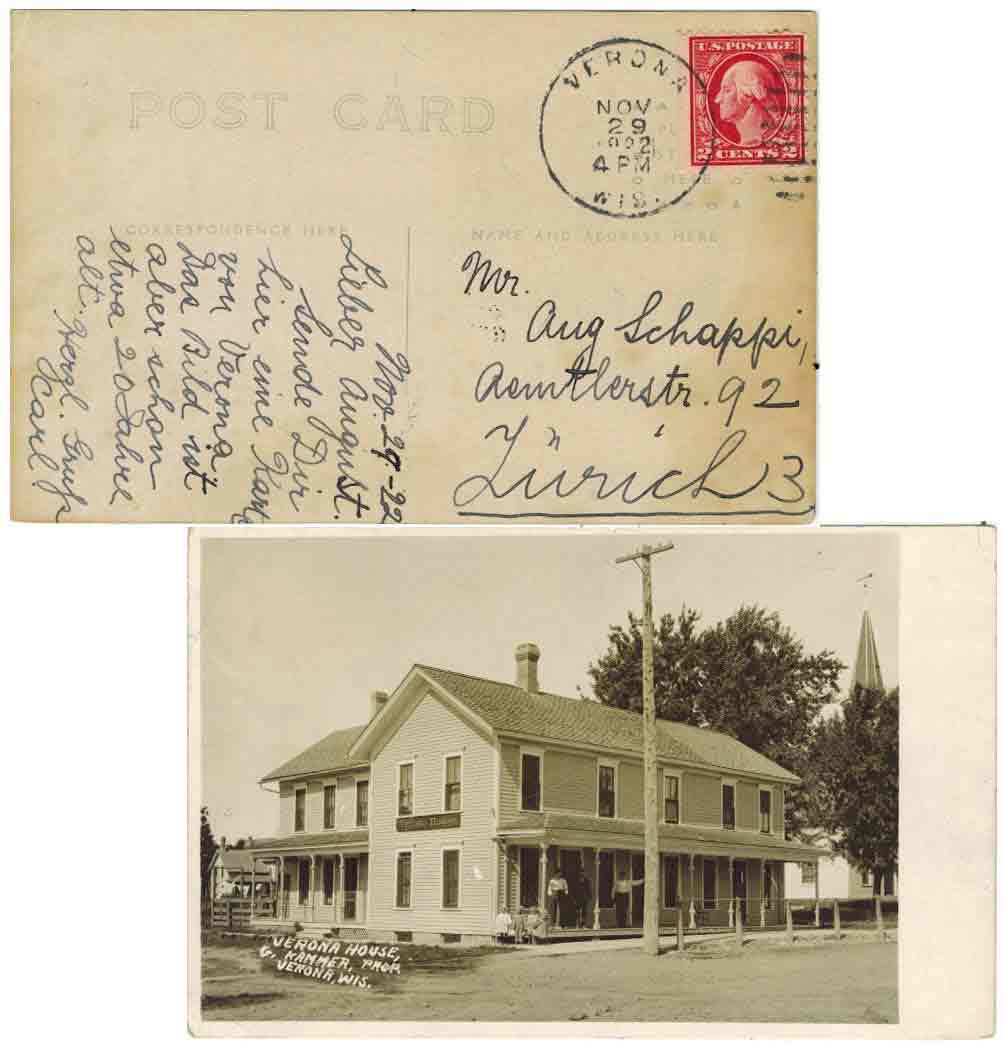 POST CARD
VERONA
NOV
29
4 PM
WIS.
U.S. POSTAGE
2 CENTS 2
HERE
CORRESPONDENCE HERE
NAME AND ADDRESS HERE
Nov. 29-22
Lieber August.
Sende Dir
hier eine Karte
von Verona
Das Bild ist
aber schon
etwa 20 Jahre
alt. Hergl. Gruß
Carl
Mr.
Aug Schappi,
Aemtlerstr. 92
Zürich 3
VERONA HOUSE,
G. KAMMER, PROP.
VERONA, WIS.